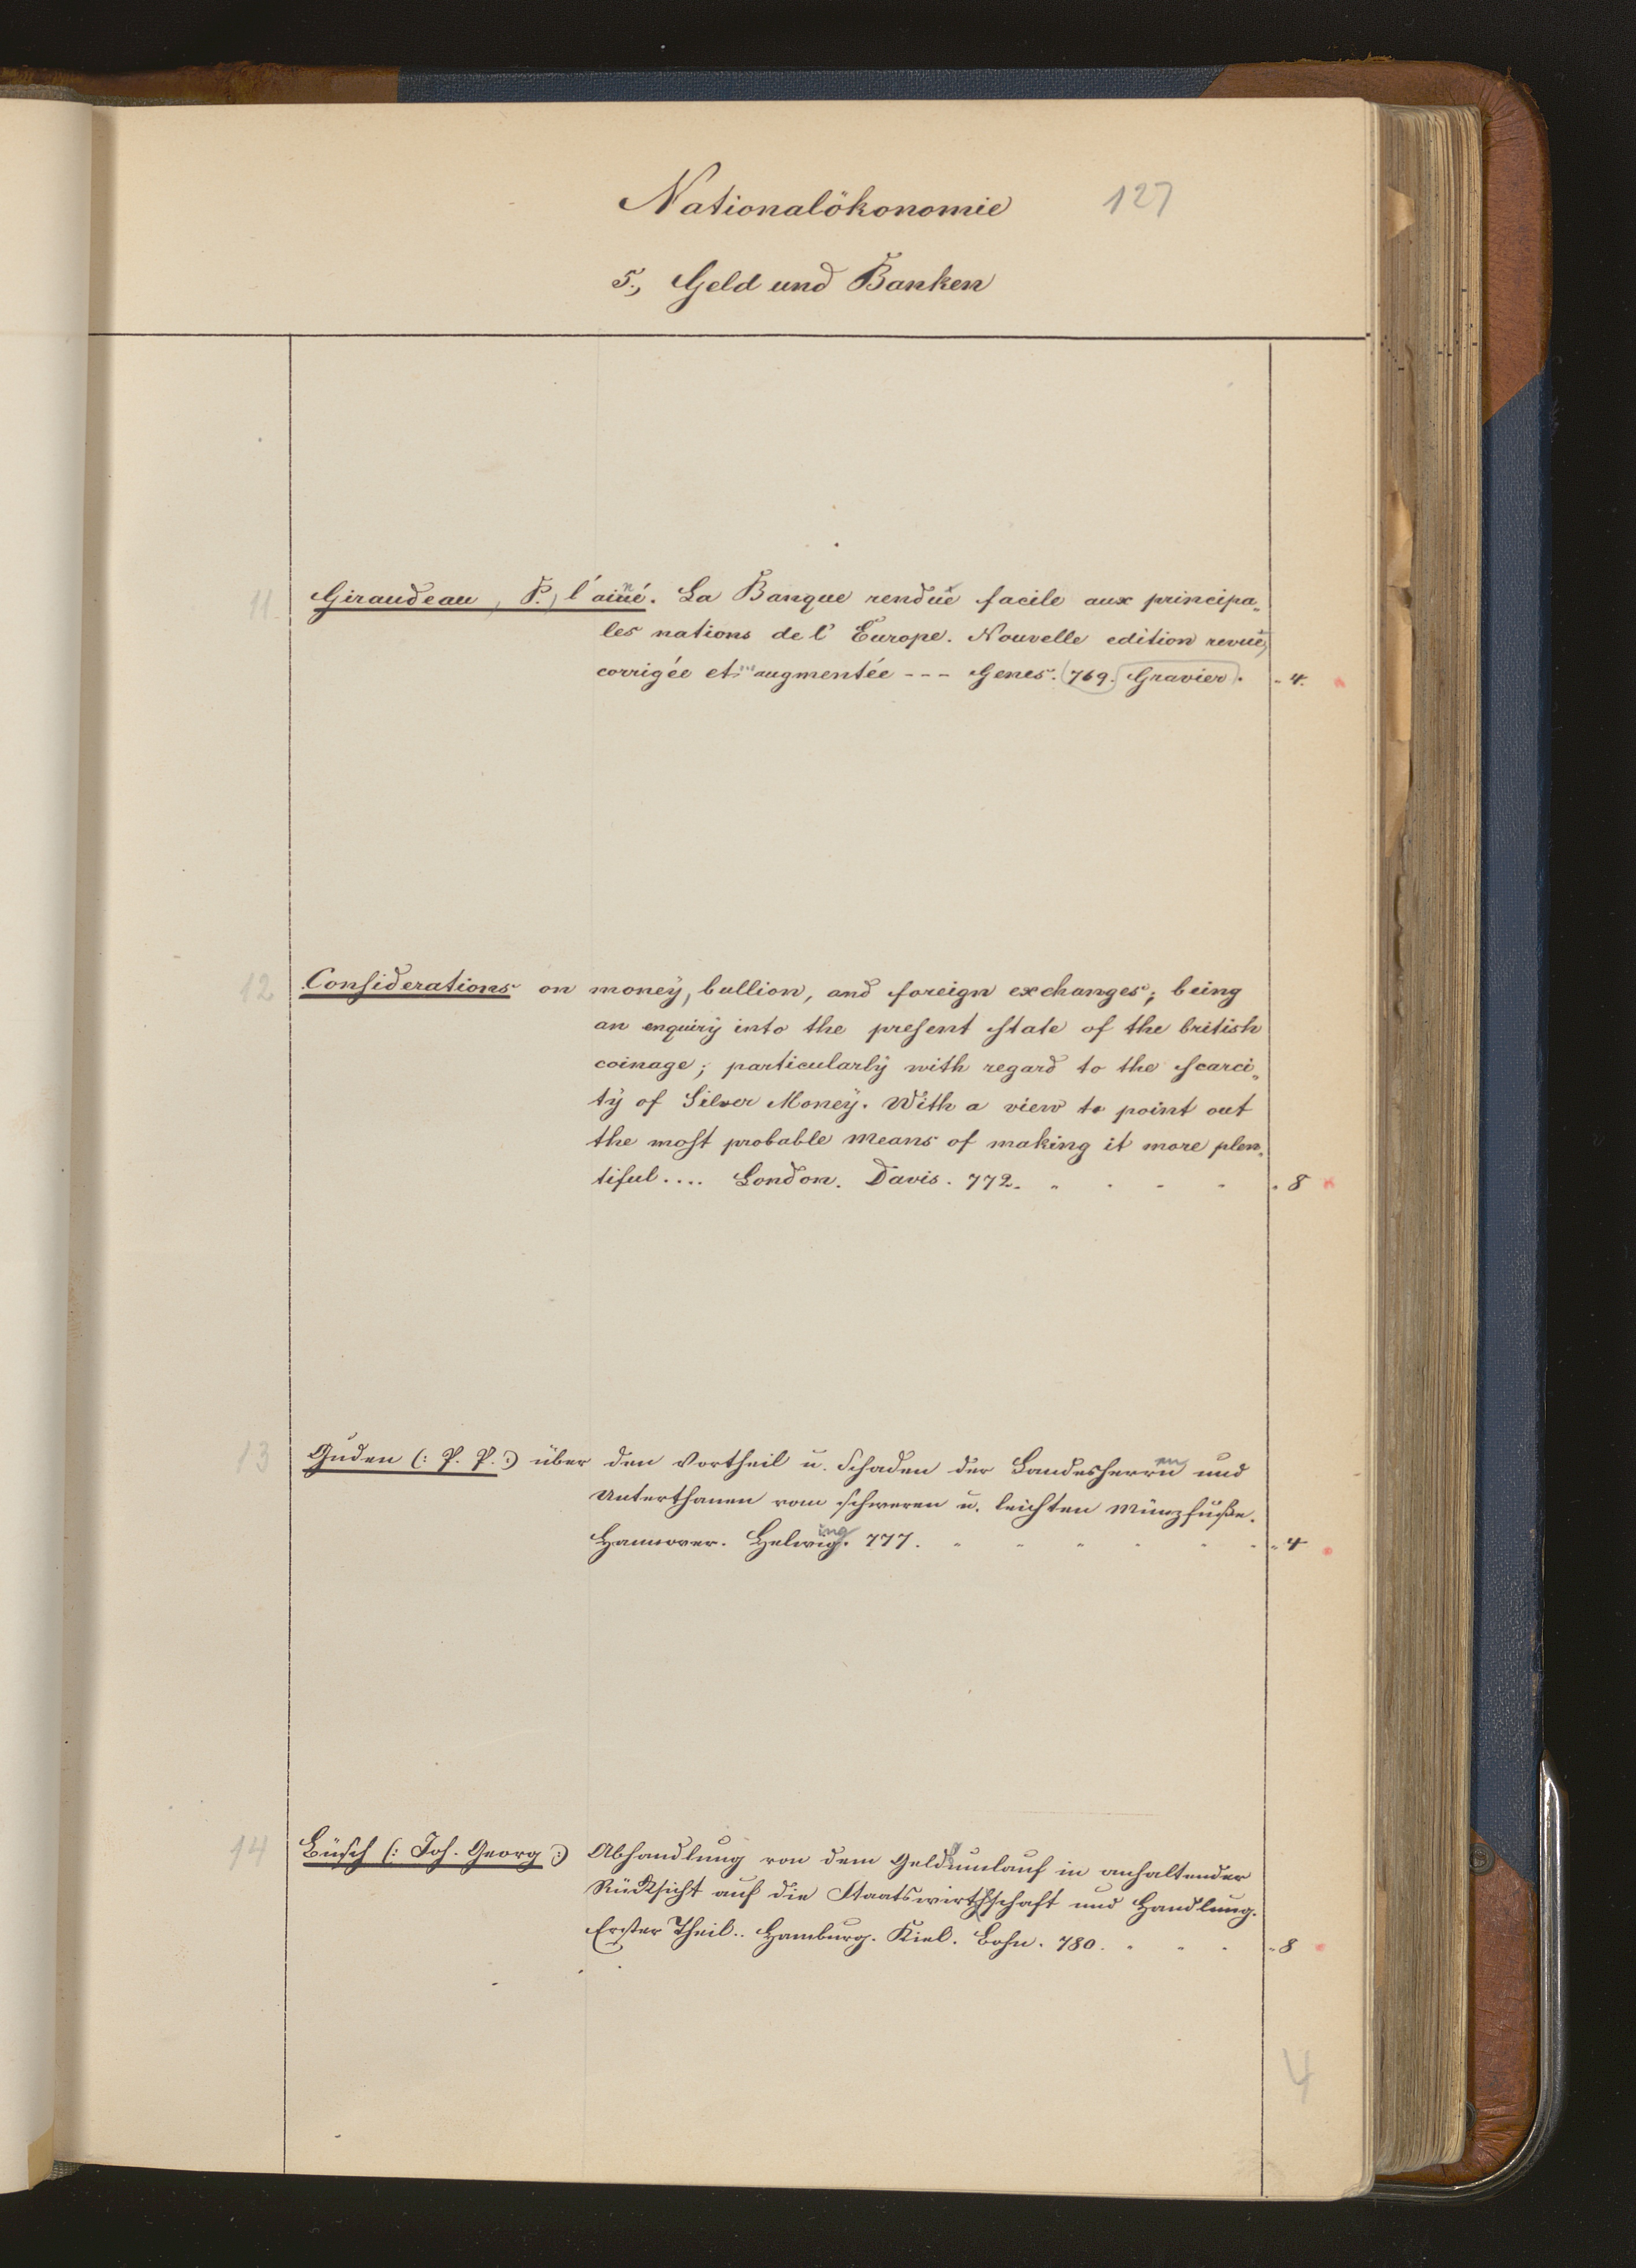 Nationalökonomie 127
5., Geld und Banken
11. Giraudeau, P., l'ainé. La Banque rendue facile aux principa„
les nations de l' Europe. Nouvelle edition revuë,
corrigée et augmentée --- Genes. 769. Gravier. „ 4.
12 Considerations on money, bullion, and foreign exchanges; being
an enquiry into the present state of the british
coinage; particularly with regard to the scarci„
ty of Silver Money. With a view to point out
the most probable means of making it more plen„
tiful.... London. Davis. 772. „ 8
13 Guden (: P. P. :) über den Vortheil u. Schaden der Landesherren und
Unterthanen vom schweren u. leichten Münzfuße.
Hannover. Helwing. 777. „ 4
14 Büsch (: Joh. Georg :) Abhandlung von dem Geldumlauf in anhaltender
Rücksicht auf die Staatswirthschaft und Handlung.
Erster Theil.. Hamburg. Kiel. Bohn. 780. „ 8
4